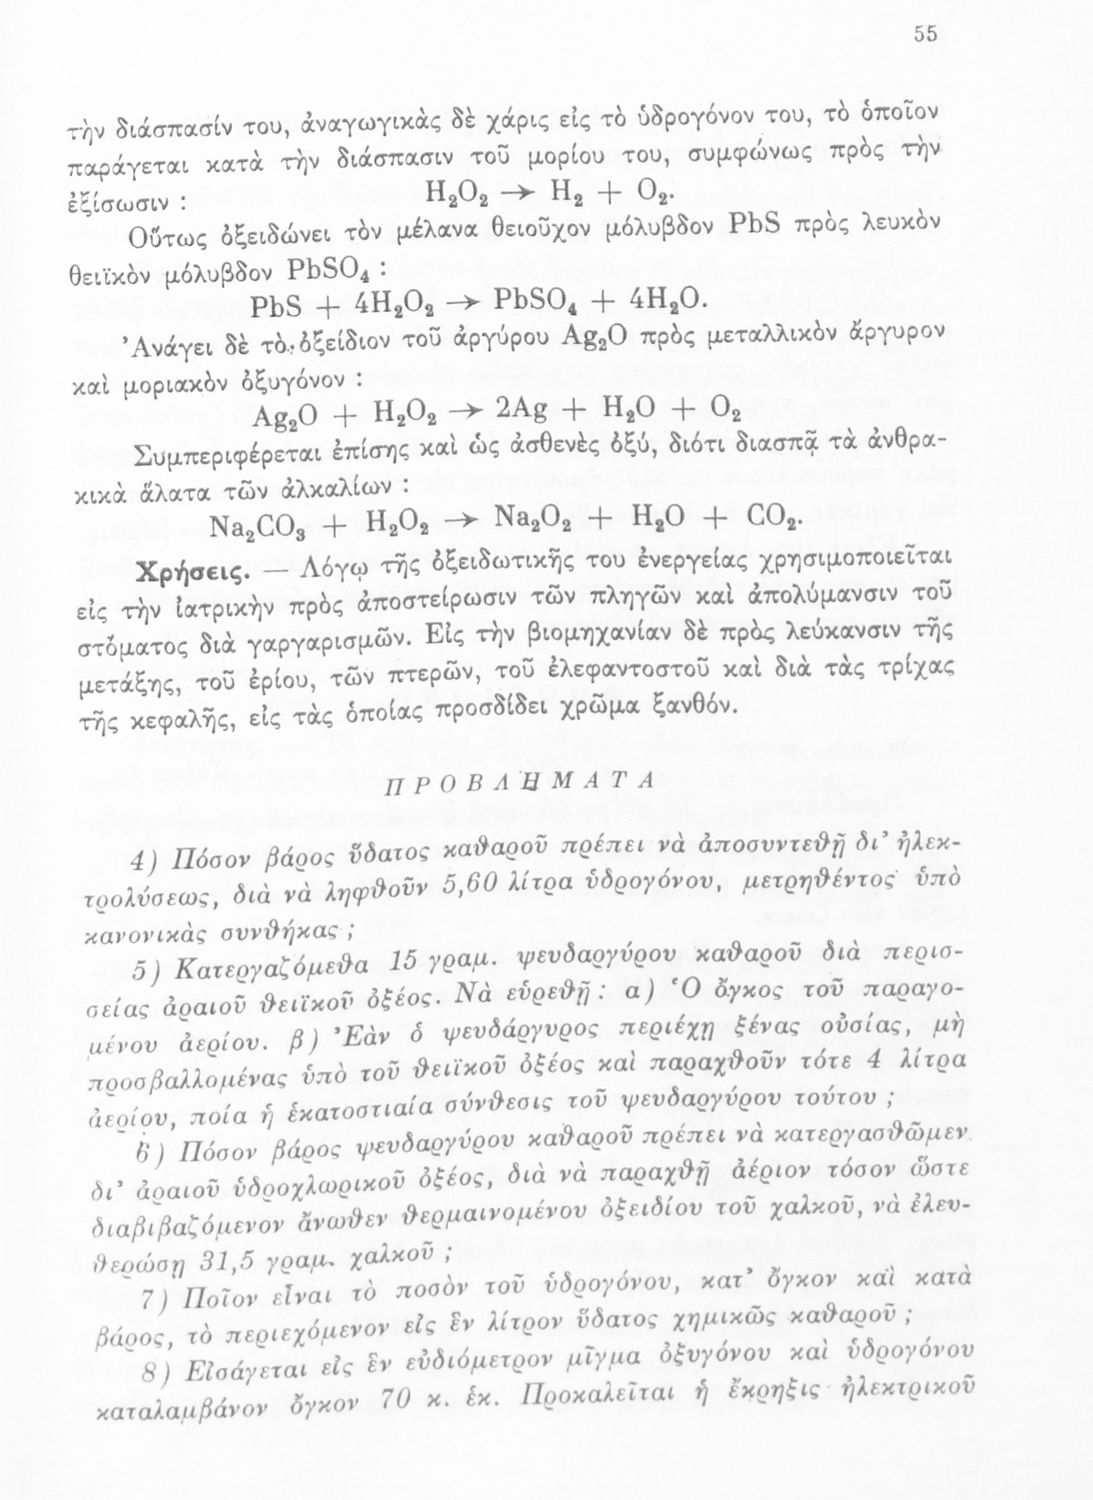 55
τὴν διάσπασίν του, ἀναγωγικὰς δὲ χάρις εἰς τὸ ὑδρογόνον του, τὸ ὁποῖον
παράγεται κατὰ τὴν διάσπασιν τοῦ μορίου του, συμφώνως πρὸς τὴν
ἐξίσωσιν : H₂O₂ → H₂ + O₂.
Οὕτως ὀξειδώνει τὸν μέλανα θειοῦχον μόλυβδον PbS πρὸς λευκὸν
θειϊκὸν μόλυβδον PbSO₄ :
PbS + 4H₂O₂ → PbSO₄ + 4H₂O.
Ἀνάγει δὲ τὸ ὀξείδιον τοῦ ἀργύρου Ag₂O πρὸς μεταλλικὸν ἄργυρον
καὶ μοριακὸν ὀξυγόνον :
Ag₂O + H₂O₂ → 2Ag + H₂O + O₂
Συμπεριφέρεται ἐπίσης καὶ ὡς ἀσθενὲς ὀξύ, διότι διασπᾷ τὰ ἀνθρα-
κικὰ ἅλατα τῶν ἀλκαλίων :
Na₂CO₃ + H₂O₂ → Na₂O₂ + H₂O + CO₂.
Χρήσεις. — Λόγῳ τῆς ὀξειδωτικῆς του ἐνεργείας χρησιμοποιεῖται
εἰς τὴν ἰατρικὴν πρὸς ἀποστείρωσιν τῶν πληγῶν καὶ ἀπολύμανσιν τοῦ
στόματος διὰ γαργαρισμῶν. Εἰς τὴν βιομηχανίαν δὲ πρὸς λεύκανσιν τῆς
μετάξης, τοῦ ἐρίου, τῶν πτερῶν, τοῦ ἐλεφαντοστοῦ καὶ διὰ τὰς τρίχας
τῆς κεφαλῆς, εἰς τὰς ὁποίας προσδίδει χρῶμα ξανθόν.
ΠΡΟΒΛΗΜΑΤΑ
4) Πόσον βάρος ὕδατος καθαροῦ πρέπει νὰ ἀποσυντεθῇ δι' ἠλεκ-
τρολύσεως, διὰ νὰ ληφθοῦν 5,60 λίτρα ὑδρογόνου, μετρηθέντος ὑπὸ
κανονικὰς συνθήκας ;
5) Κατεργαζόμεθα 15 γραμ. ψευδαργύρου καθαροῦ διὰ περισ-
σείας ἀραιοῦ θειϊκοῦ ὀξέος. Νὰ εὑρεθῇ : α) Ὁ ὄγκος τοῦ παραγο-
μένου ἀερίου. β) Ἐὰν ὁ ψευδάργυρος περιέχῃ ξένας οὐσίας, μὴ
προσβαλλομένας ὑπὸ τοῦ θειϊκοῦ ὀξέος καὶ παραχθοῦν τότε 4 λίτρα
ἀερίου, ποία ἡ ἑκατοστιαία σύνθεσις τοῦ ψευδαργύρου τούτου ;
6) Πόσον βάρος ψευδαργύρου καθαροῦ πρέπει νὰ κατεργασθῶμεν
δι' ἀραιοῦ ὑδροχλωρικοῦ ὀξέος, διὰ νὰ παραχθῇ ἀέριον τόσον ὥστε
διαβιβαζόμενον ἄνωθεν θερμαινομένου ὀξειδίου τοῦ χαλκοῦ, νὰ ἐλευ-
θερώσῃ 31,5 γραμ. χαλκοῦ ;
7) Ποῖον εἶναι τὸ ποσὸν τοῦ ὑδρογόνου, κατ' ὄγκον καὶ κατὰ
βάρος, τὸ περιεχόμενον εἰς ἓν λίτρον ὕδατος χημικῶς καθαροῦ ;
8) Εἰσάγεται εἰς ἓν εὐδιόμετρον μῖγμα ὀξυγόνου καὶ ὑδρογόνου
καταλαμβάνον ὄγκον 70 κ. ἑκ. Προκαλεῖται ἡ ἔκρηξις ἠλεκτρικοῦ